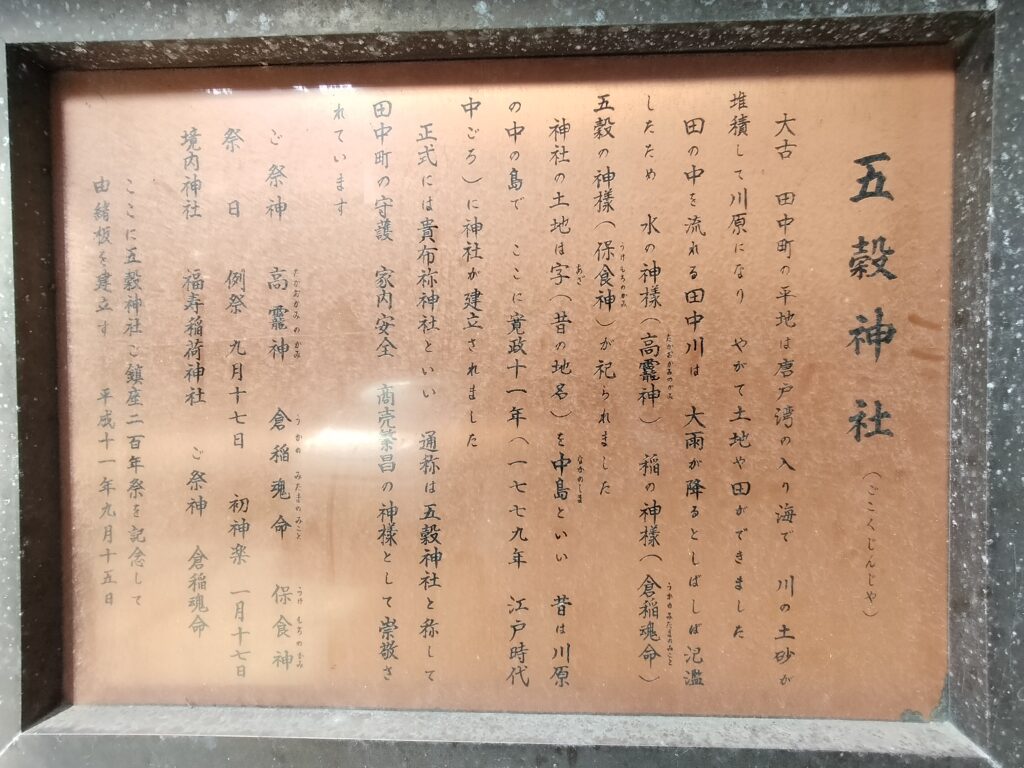 五穀神社（ごこくじんじや）
大古　田中町の平地は唐戸湾の入り海で　川の土砂が
堆積して川原になり　やがて土地や田ができました
田の中を流れる田中川は　大雨が降るとしばしば氾濫
したため　水の神様（高龗神）　稲の神様（倉稲魂命）
五穀の神様（保食神）が祀られました
神社の土地は字（昔の地名）を中島といい　昔は川原
の中の島で　ここに寛政十一年（一七七九年　江戸時代
中ごろ）に神社が建立されました
正式には貴布祢神社といい　通称は五穀神社と称して
田中町の守護　家内安全　商売繁昌の神様として崇敬さ
れています
ご祭神　高龗神　倉稲魂命　保食神
祭日　例祭　九月十七日　初神楽　一月十七日
境内神社　福寿稲荷神社　ご祭神　倉稲魂命
ここに五穀神社ご鎮座二百年祭を記念して
由緒板を建立す　平成十一年九月十五日